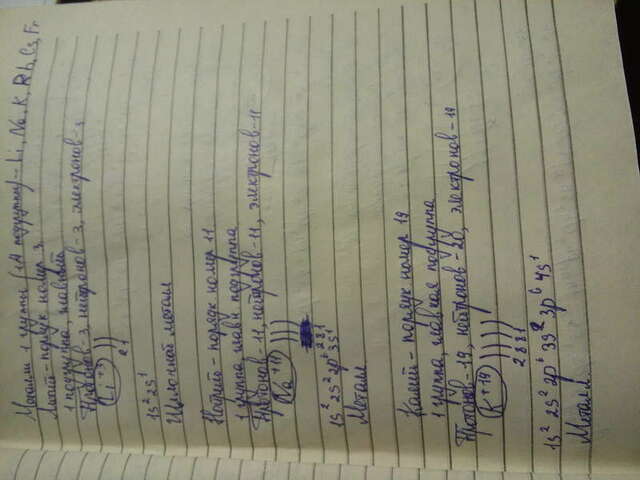 Металлы 1 группы (1А подгруппы) - Li, Na, K, Rb, Cs, Fr
порядк номер 3
1 подгруппа главный
Протонов-3, нейтронов-3, электронов-3
Li +3 ) )
2 1
1s² 2s¹
Щелочной метал
Натрий - порядк номер 11
1 группа главн подгруппа
Протонов-11, нейтронов-11, электронов-11
Na +11 ) ) )
2 8 1
1s² 2s² 2p⁶ 3s¹
Металл
Калий - порядк номер 19
1 группа, главная подгруппа
Протонов-19, нейтронов-20, электронов-19
K +19 ) ) ) )
2 8 8 1
1s² 2s² 2p⁶ 3s² 3p⁶ 4s¹
Металл